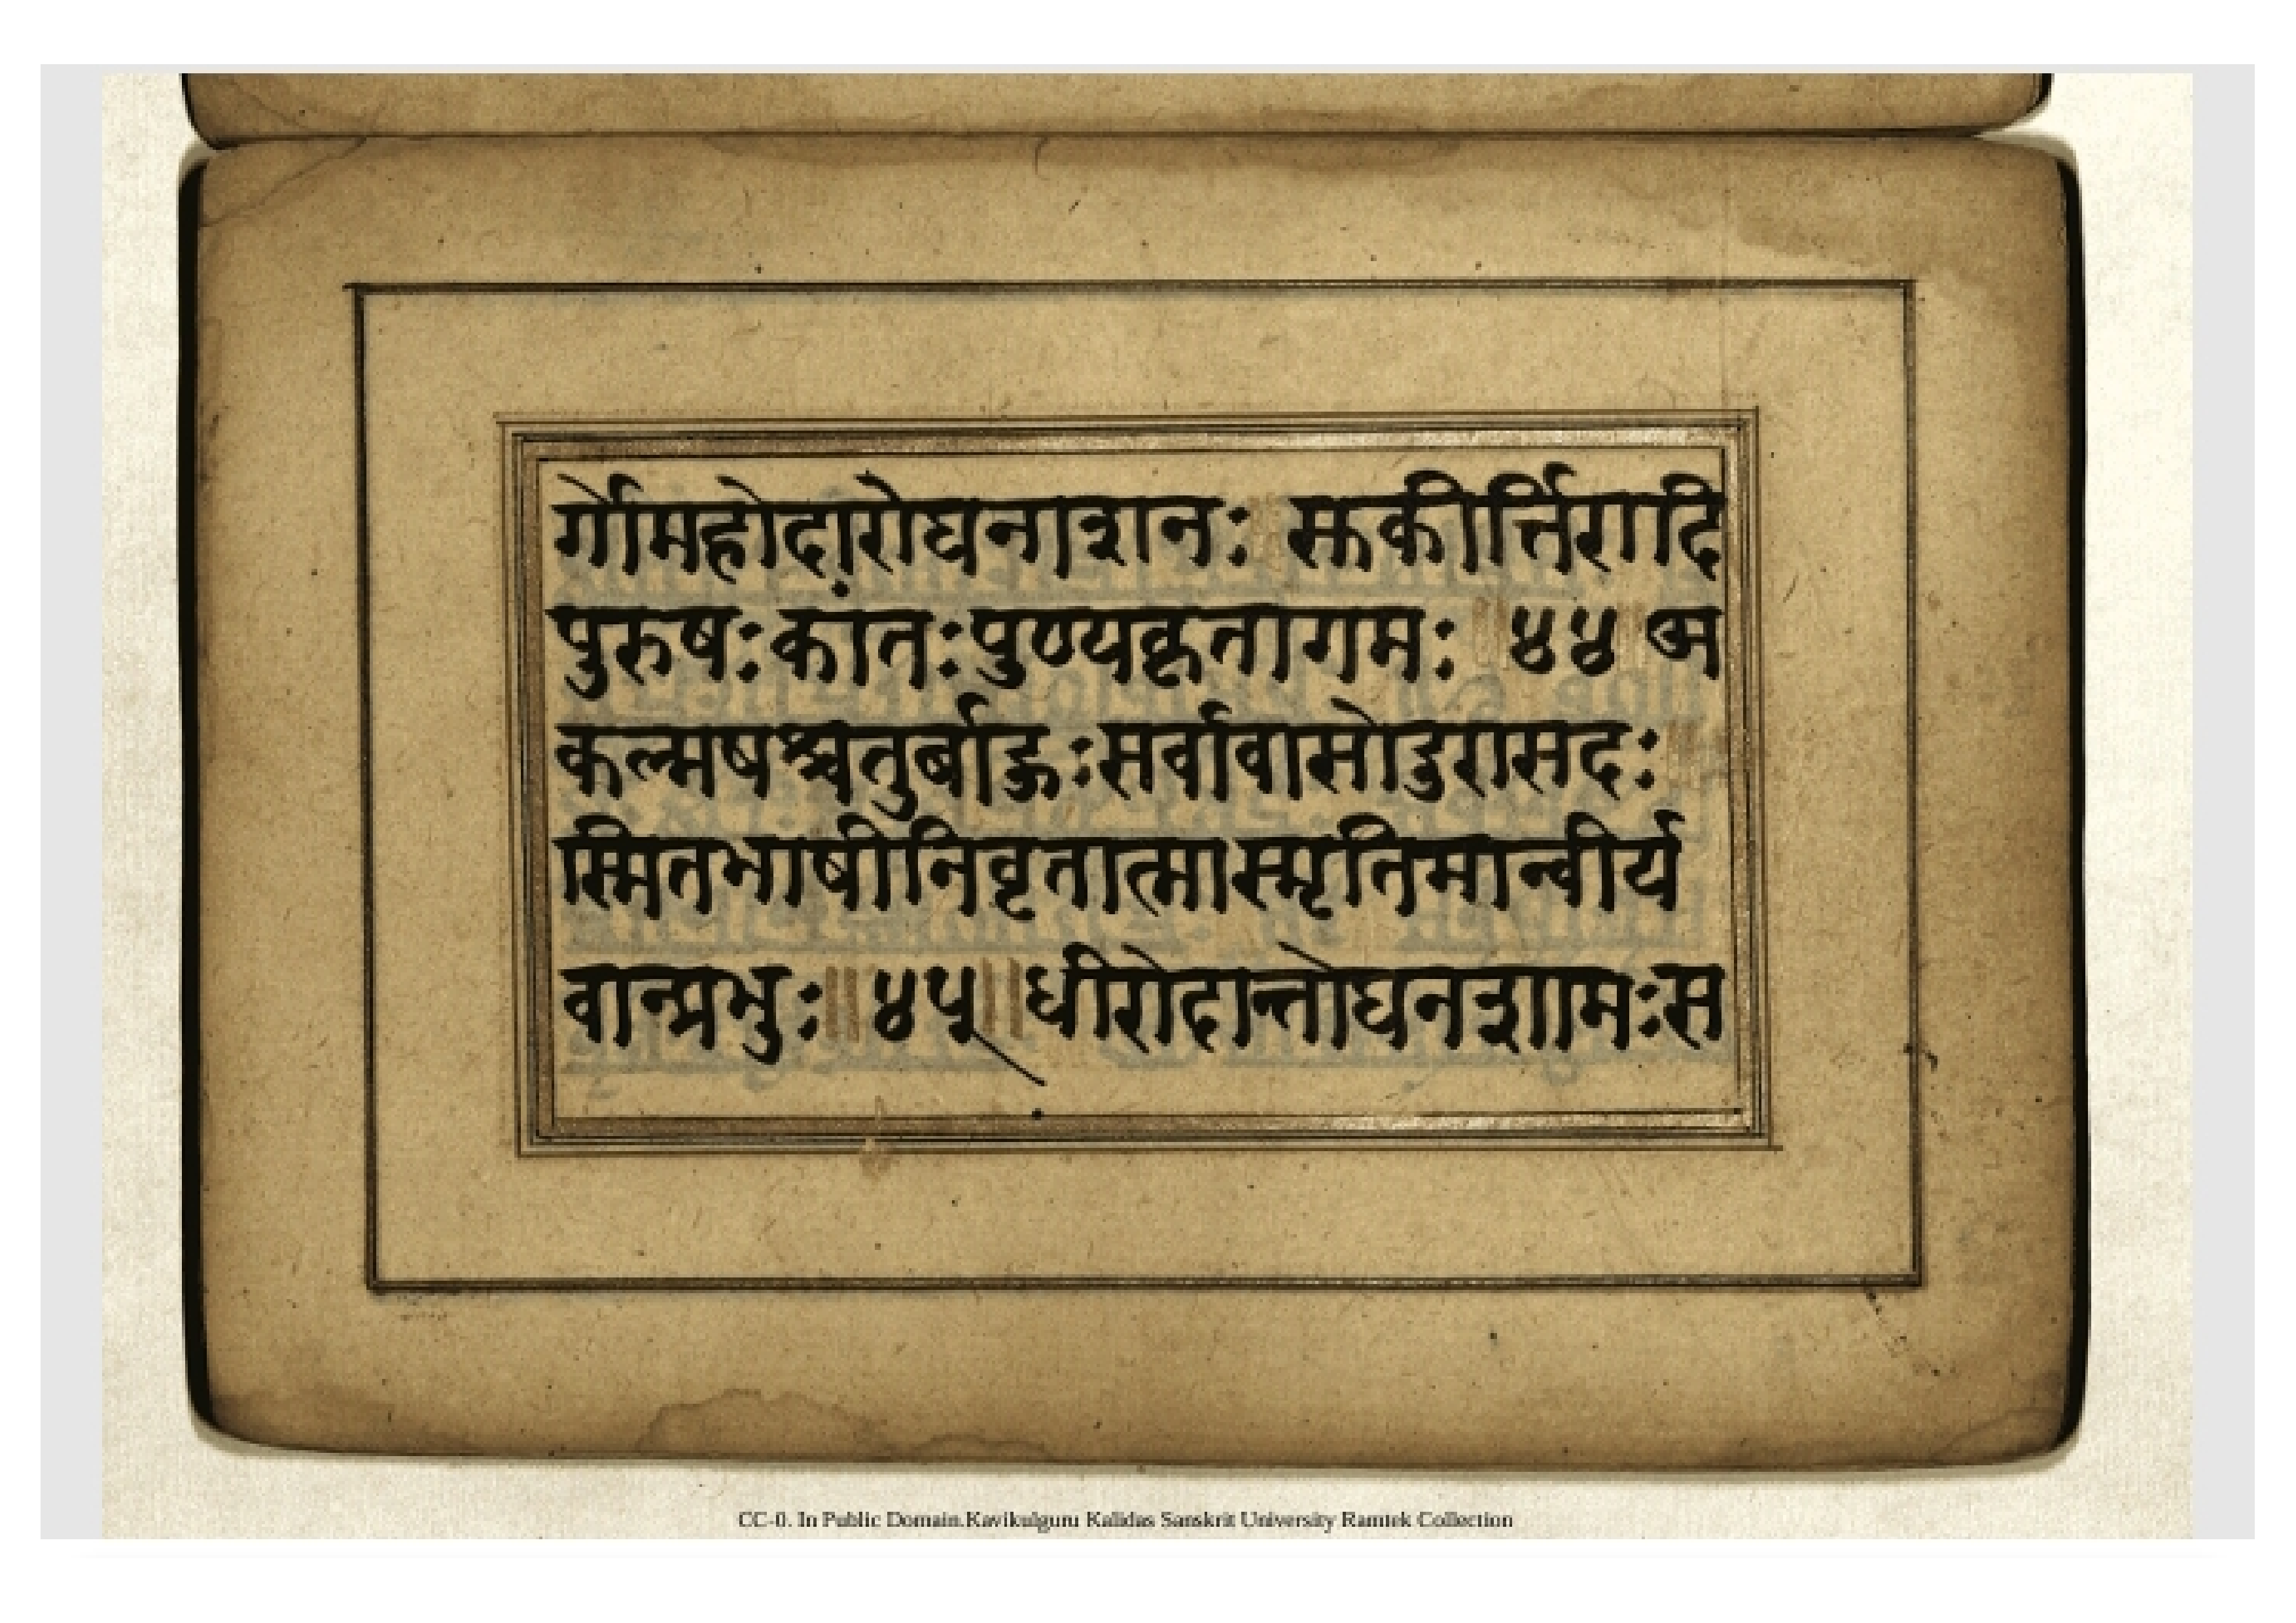 र्गोमहोदारोघनाशनः ॥ सुकीर्त्तिरादि
पुरुषःकांतःपुण्यकृतागमः ॥ ४४ ॥ अ
कल्मषश्चतुर्बाहुःसर्वावासोदुरासदः ॥
स्मितभाषीनिवृतात्मास्मृतिमान्वीर्य
वान्प्रभुः ॥ ४५ ॥ धीरोदान्तोघनश्यामःस
CC-0. In Public Domain.Kavikulguru Kalidas Sanskrit University Ramtek Collection